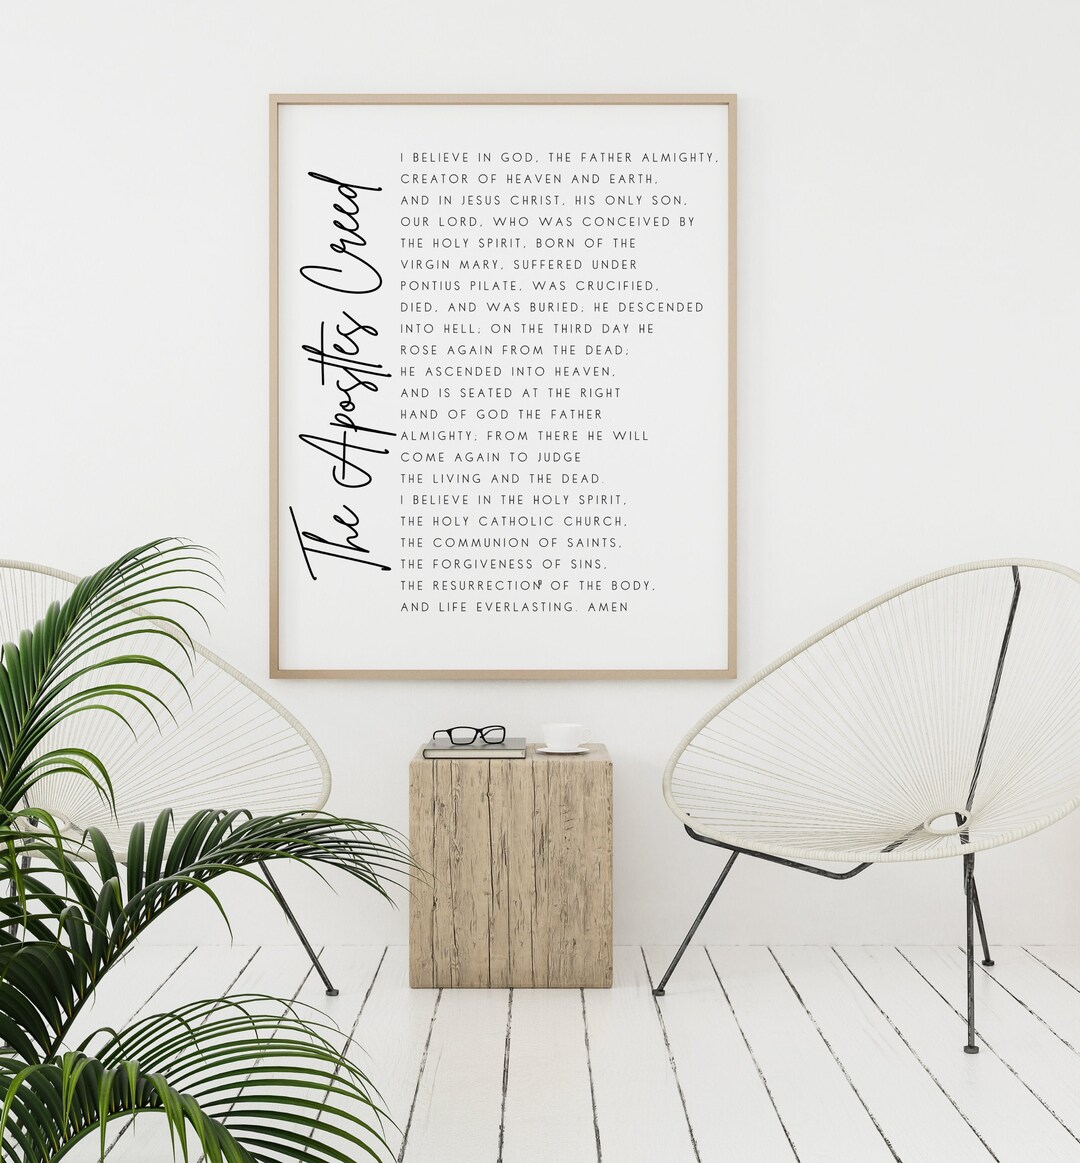 The Apostles Creed
I BELIEVE IN GOD, THE FATHER ALMIGHTY,
CREATOR OF HEAVEN AND EARTH,
AND IN JESUS CHRIST, HIS ONLY SON,
OUR LORD, WHO WAS CONCEIVED BY
THE HOLY SPIRIT, BORN OF THE
VIRGIN MARY, SUFFERED UNDER
PONTIUS PILATE, WAS CRUCIFIED,
DIED, AND WAS BURIED; HE DESCENDED
INTO HELL; ON THE THIRD DAY HE
ROSE AGAIN FROM THE DEAD;
HE ASCENDED INTO HEAVEN,
AND IS SEATED AT THE RIGHT
HAND OF GOD THE FATHER
ALMIGHTY; FROM THERE HE WILL
COME AGAIN TO JUDGE
THE LIVING AND THE DEAD.
I BELIEVE IN THE HOLY SPIRIT,
THE HOLY CATHOLIC CHURCH,
THE COMMUNION OF SAINTS,
THE FORGIVENESS OF SINS,
THE RESURRECTION OF THE BODY,
AND LIFE EVERLASTING. AMEN